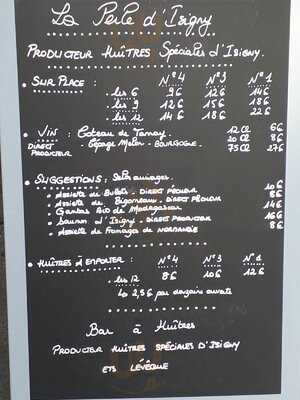 La Perle d'Isigny
Producteur Huîtres Spéciales d'Isigny.
• Sur Place : N°4 N°3 N°1
. les 6 9€ 12€ 14€
. les 9 12€ 15€ 18€
. les 12 14€ 18€ 22€
• Vin : Coteau de Tannay. 12 Cl 6€
Direct Cépage Melon - Bourgogne. 20 Cl 8€
Producteur 75 Cl 27€
• Suggestions : Selon arrivages.
. Assiette de Bulots - Direct Pêcheur 10€
. Assiette de Bigorneaux - Direct Pêcheur 8€
. Gambas Bio de Madagascar 14€
. Saumon d'Isigny - Direct Producteur 16€
. Assiette de Fromages de Normandie 8€
• Huîtres à Emporter : N°4 N°3 N°1
. les 12 8€ 10€ 12€
2,5€ par douzaine ouverte
Bar à Huîtres
Producteur Huîtres Spéciales d'Isigny
Ets Lévêque